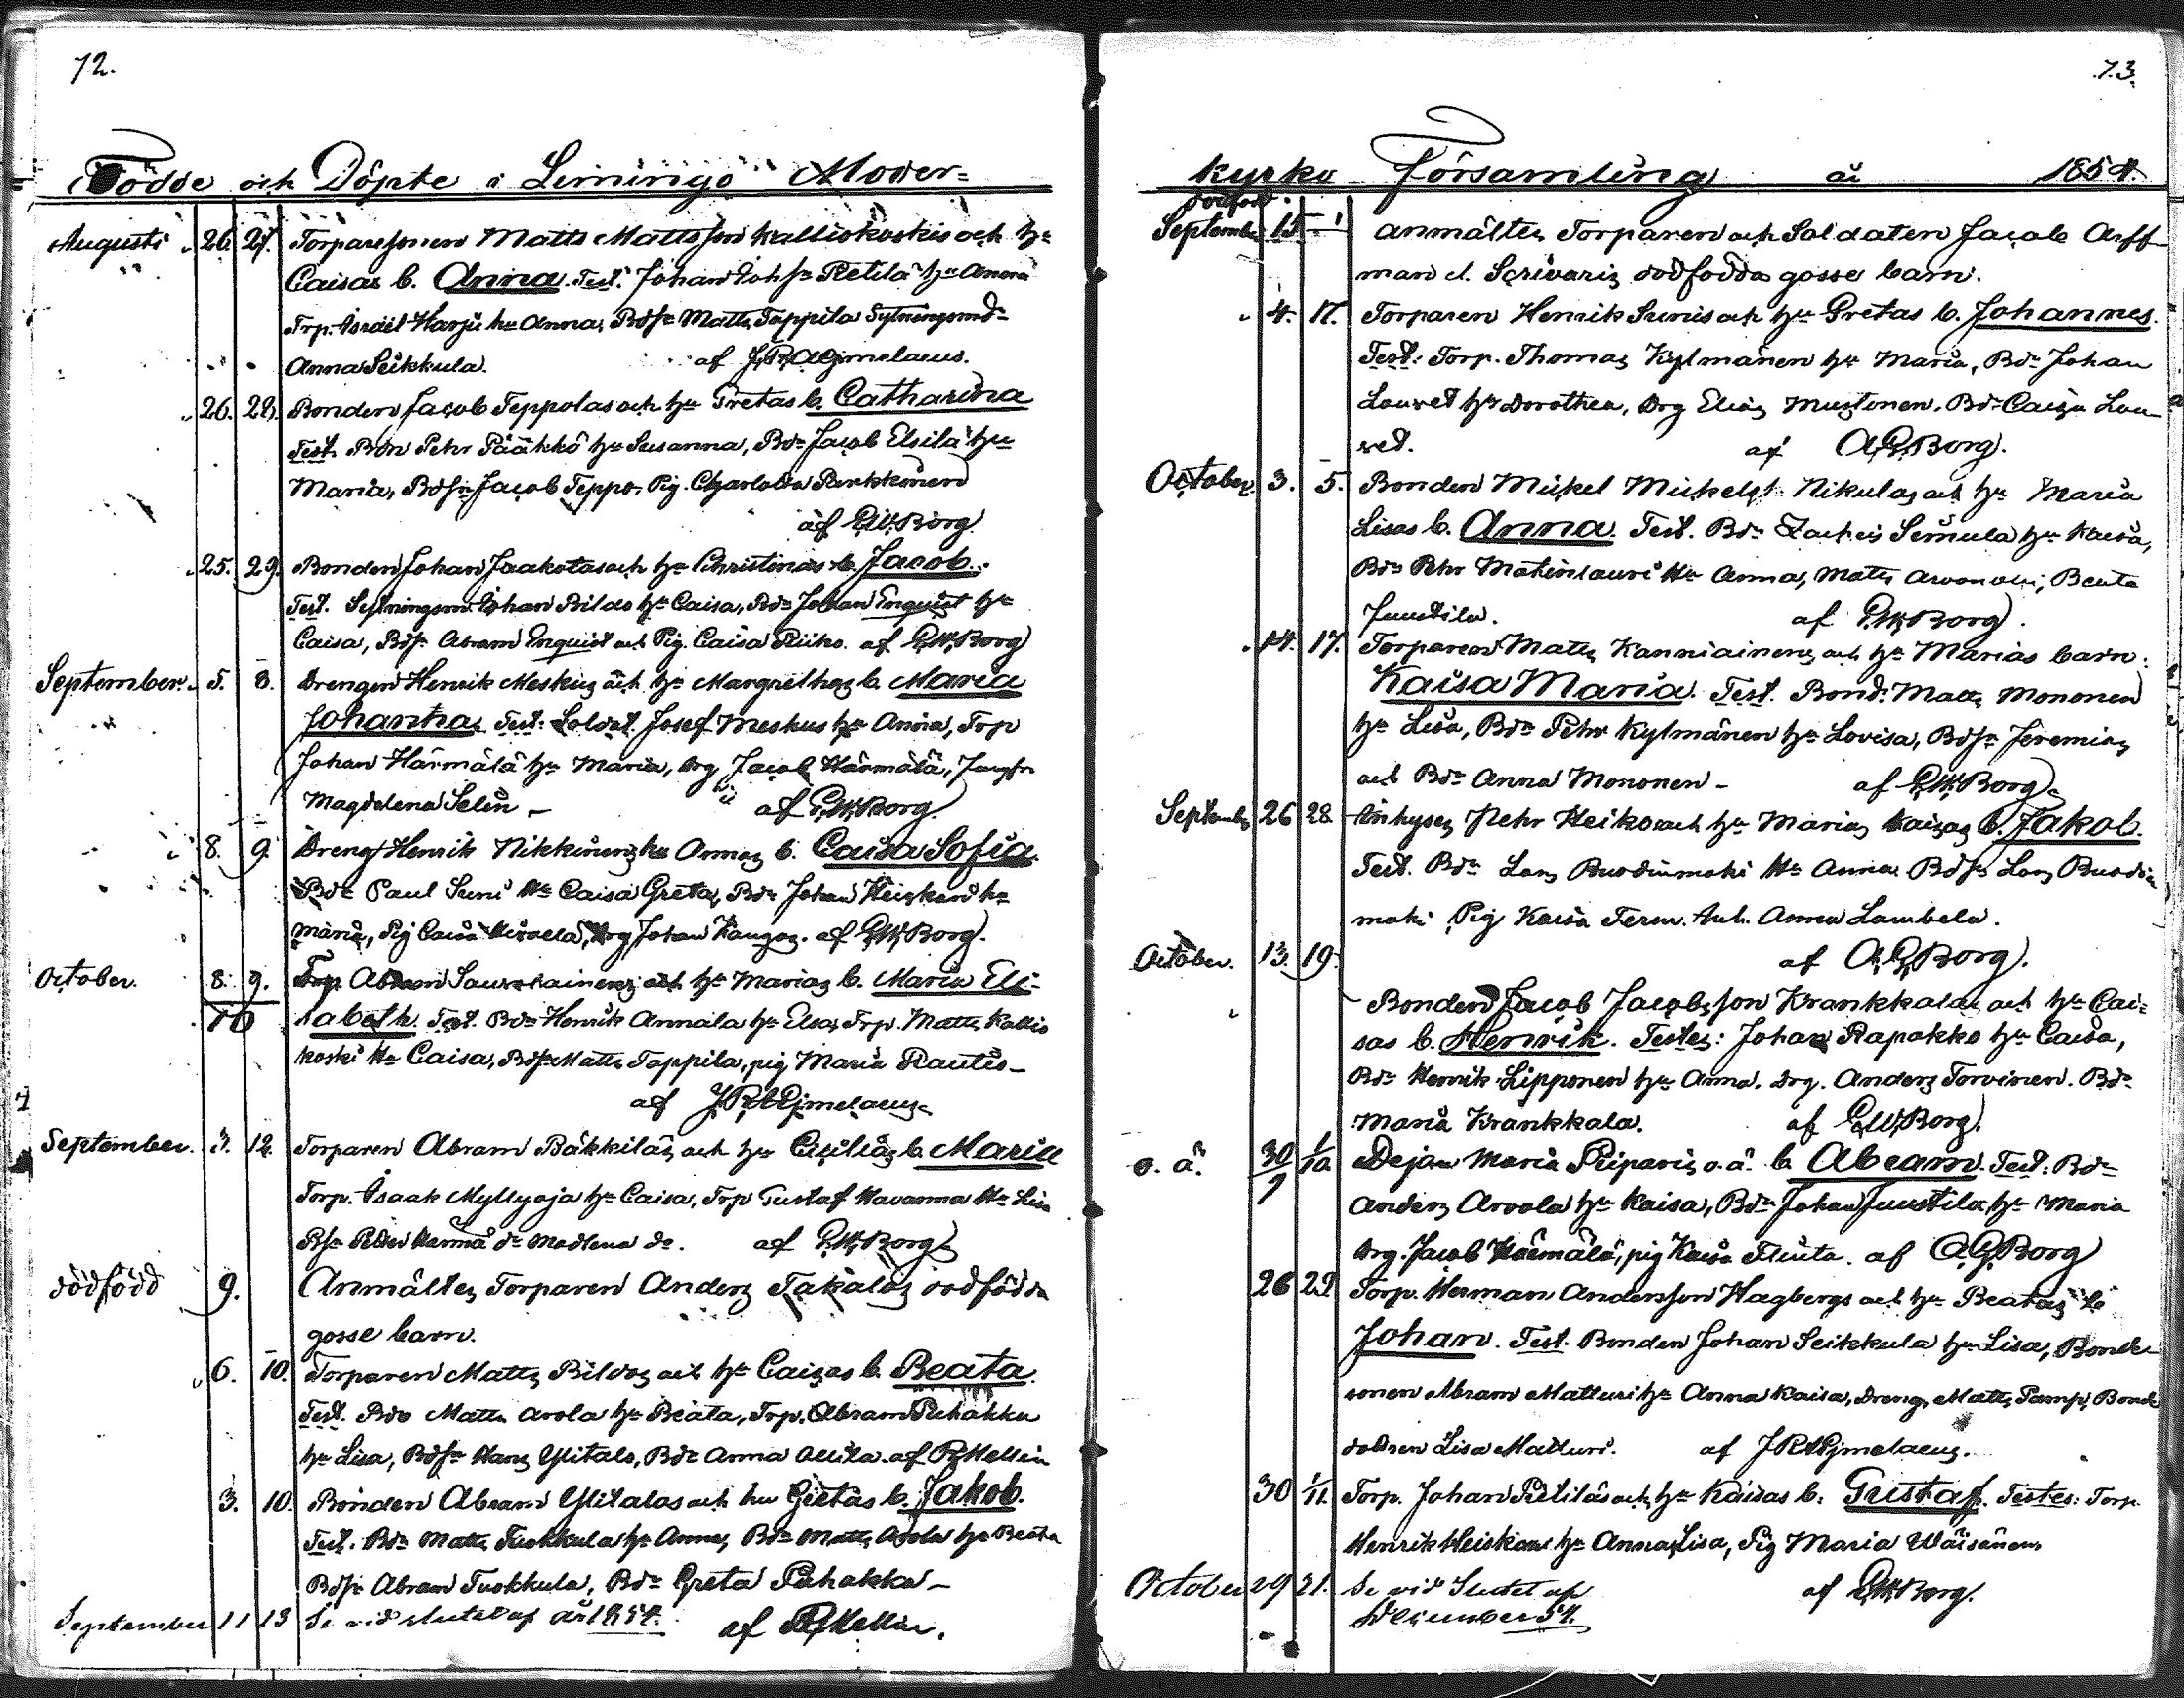 72.
Födde och Döpte i Limingo Moder-
Augusti 26. 27. Torparesonen Matts Mattsson Kalliokoskis och hu
Caisas b. Anna. Test. Johan Joh.sn Pietilä hu Anna
Trp. Israel Harju hu Anna, Bdsn Matts Tappila Sytningsmd
Anna Seikkula. af J.R. Hjmelaeus.
26. 28. Bonden Jacob Teppolas och hu Gretas b. Catharina
Test. Bdn Pehr Pääkkö hu Susanna, Bdn Jacob Elsilä hu
Maria, Bdsn Jacob Teppo, Pig. Charlotta Parkkinen
af G.W. Borg
25. 29. Bonden Johan Jaakolas och hu Christinas b. Jacob.
Test. Johan Pildo hu Caisa, Bdn Johan Enquist hu
Caisa, Bdsn Abram Enquist och Pig. Caisa Riiko. af G.W. Borg
September. 5. 8. Drengen Henrik Meskus och hu Margrethas b. Maria
Johanna. Test: Soldat. Josef Meskus hu Anna, Trp
Johan Härmälä hu Maria, drg Jacob Härmälä, Jungfr
Magdelena Selin - af G.W. Borg.
8. 9. Dreng Henrik Nikkinens hu Annas b. Caisa Sofia.
Bdn Paul Suni hu Caisa Greta, Bdn Johan Heiskari hu
Maria, Pig Caisa, Drg Johan Kangas. af G.W. Borg.
October. 8. 9. Trp. Abram hu Marias b. Maria Eli-
10 sabeth. Test. Bdn Henrik Annala hu Elsa, Trp. Matts Kallio
koski hu Caisa, Bdsn Matts Tappila, pig Maria Rautio -
af J.R. Hjmelaeus.
September. 3. 12. Torparen Abram Bäkkiläs och hu Cicilias b. Maria
Torp. Isaak Myllyoja hu Caisa, Trp Gustaf Havanna hu Lisa
Bsn Peter do Madlena do. af G.W. Borg
dödfödd 9. Anmältes Torparen Anders Takalos dödfödda
gosse barn.
6. 10. Torparen Matts Pildos och hu Caisas b. Beata.
Test. Bdn Matts Arola hu Beata, Trp. Abram Puhakka
hu Lisa, Bdsn Hans Ylitalo, Bdr Anna af R. Mellin
3. 10. Bonden Abram Ylitalos och hu Gretas b. Jakob.
Test. Bdn Matts Tuokkula hu Anna, Bdn Matts Arola hu Beata
Bdsn Abram Tuokkula, Bdr Greta Puhakka -
September 11 13 Se vid slutet af år 1854. af R. Mellin.
73.
kyrko Församling år 1854.
dödfödd.
September 15 1 anmältes Torparen och Soldaten Jacob Auff
man dödfödda gosse barn.
4. 17. Torparen Henrik Sunis och hu Gretas b. Johannes.
Test: Torp. Thomas Kylmänen hu Maria, Bdn Johan
Lauret hu Dorothea, Drg Elias Mustonen, Bdr Caisa Lau-
ret. af A.G. Borg.
October. 3. 5. Bonden Mickel Mickelss. Nikulas och hu Maria
Lisas b. Anna. Test. Bdn Zacheus hu Kaisa,
Bdn Pehr Matinlauri hu Anna, Matts, Beata
Juustila. af G.W. Borg.
14. 17. Torparen Matts Kanniainens och hu Marias barn.
Kaisa Maria. Test. Bond: Matts Mononen
hu Lisa, Bdn Pehr Kylmänen hu Lovisa, Bdsn Jeremias
och Bdr Anna Mononen - af G.W. Borg.
September 26 28 Inhyses Pehr Heikos och hu Maria Kaisas b. Jakob.
Test. Bdn Lars hu Anna, Bdsn Lars
maki Pig Kaisa Anna Lambela.
October. 13. 19. af A.G. Borg.
Bonden Jacob Jacobsson Krankkalas och hu Cai-
sas b. Henrik. Testes: Johan Rapakko hu Caisa,
Bdn Henrik Lipponen hu Anna. drg. Anders Torvinen. Bdr
Maria Krankkala. af G.W. Borg.
o. ä. 30/7 1/10 Dejan Maria Piiparis o.ä. b. Abram. Test: Bdn
Anders Arvola hu Kaisa, Bdn Johan Juustila hu Maria
Drg. Jacob Härmälä, pig Kaisa Fluta. af A.G. Borg
26 29 Torp. Herman Andersson Hagbergs och hu Beatas b.
Johan. Test. Bonden Johan Seikkula hu Lisa, Bonde
sonen Abram Matturi hu Anna Kaisa, Dreng. Matts Pamp, Bonde
dottren Lisa Matturi. af J.R. Hjmelaeus.
30 1/11. Torp. Johan Pietiläs och hu Kaisas b. Gustaf. Testes: Torp.
Henrik Heiskari hu Anna Lisa, Pig Maria Wäisänen,
October 29 31. Se vid Slutet af af G.W. Borg.
December 54.